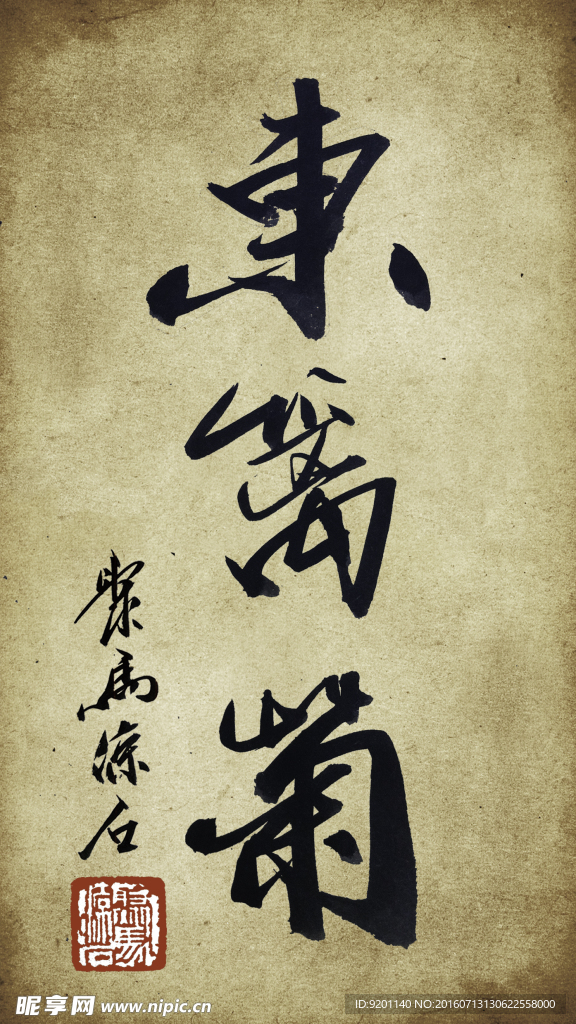 東篱菊
聚馬涼石
昵享网 www.nipic.cn
ID:9201140 NO:20160713130622558000